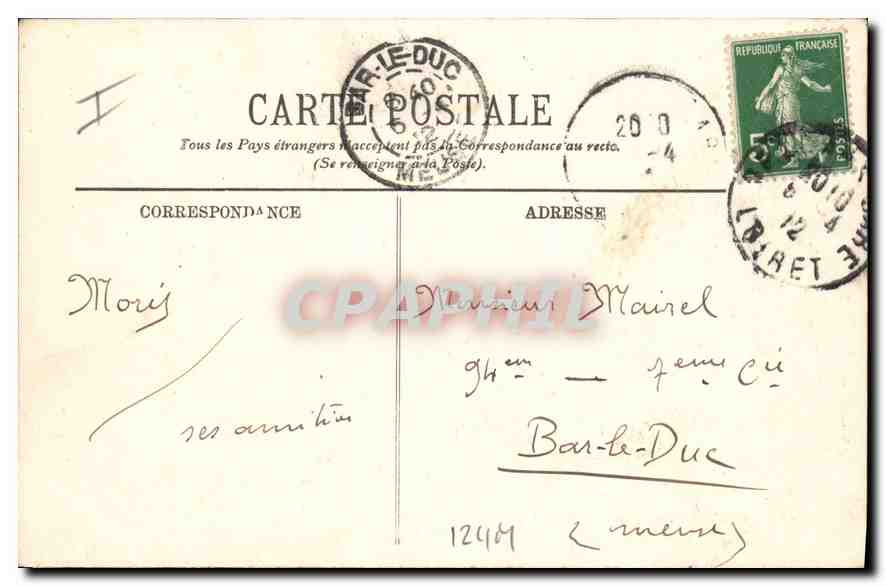 BAR-LE-DUC
CARTE POSTALE
Tous les Pays étrangers n'acceptent pas la Correspondance au recto.
(Se renseigner à la Poste).
REPUBLIQUE FRANÇAISE
POSTES
5
20 10
-4
LOIRET
12
CORRESPONDANCE
ADRESSE
CPAPHIL
Moris
ses amitiés
Monsieur Mairel
94em — 7eme Cie
Bar-le-Duc
(meuse)
1244